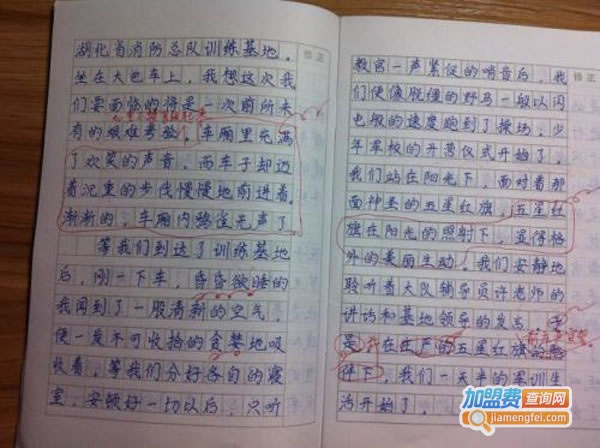 湖北省消防总队训练基地。
坐在大巴车上,我想这次我
们要面临的将是一次前所未
有的艰难考验。车厢里充满
了欢笑的声音,而车子却迈
着沉重的步伐慢慢地前进着。
渐渐的,车厢内鸦雀无声了。
等我们到达了训练基地
后,刚一下车,昏昏欲睡的
我闻到了一股清新的空气,
便一发不可收拾的贪婪地吸
收着。等我们分好各自的寝
室,安顿好一切以后,只听
修正
教官一声紧促的哨音后,我
们便像脱缰的野马一般以闪
电般的速度跑到了操场,少
年军校的开营仪式开始了,
我们站在阳光下,面对着那
面神圣的五星红旗,五星红
旗在阳光的照射下,显得格
外的美丽生动。我们安静地
聆听着大队辅导员许老师的
讲话和基地领导的发言。于
是,在庄严的五星红旗的
伴下,我们一天半的军训生
活开始了。
修正
加盟费查询网
jiamengfei.com